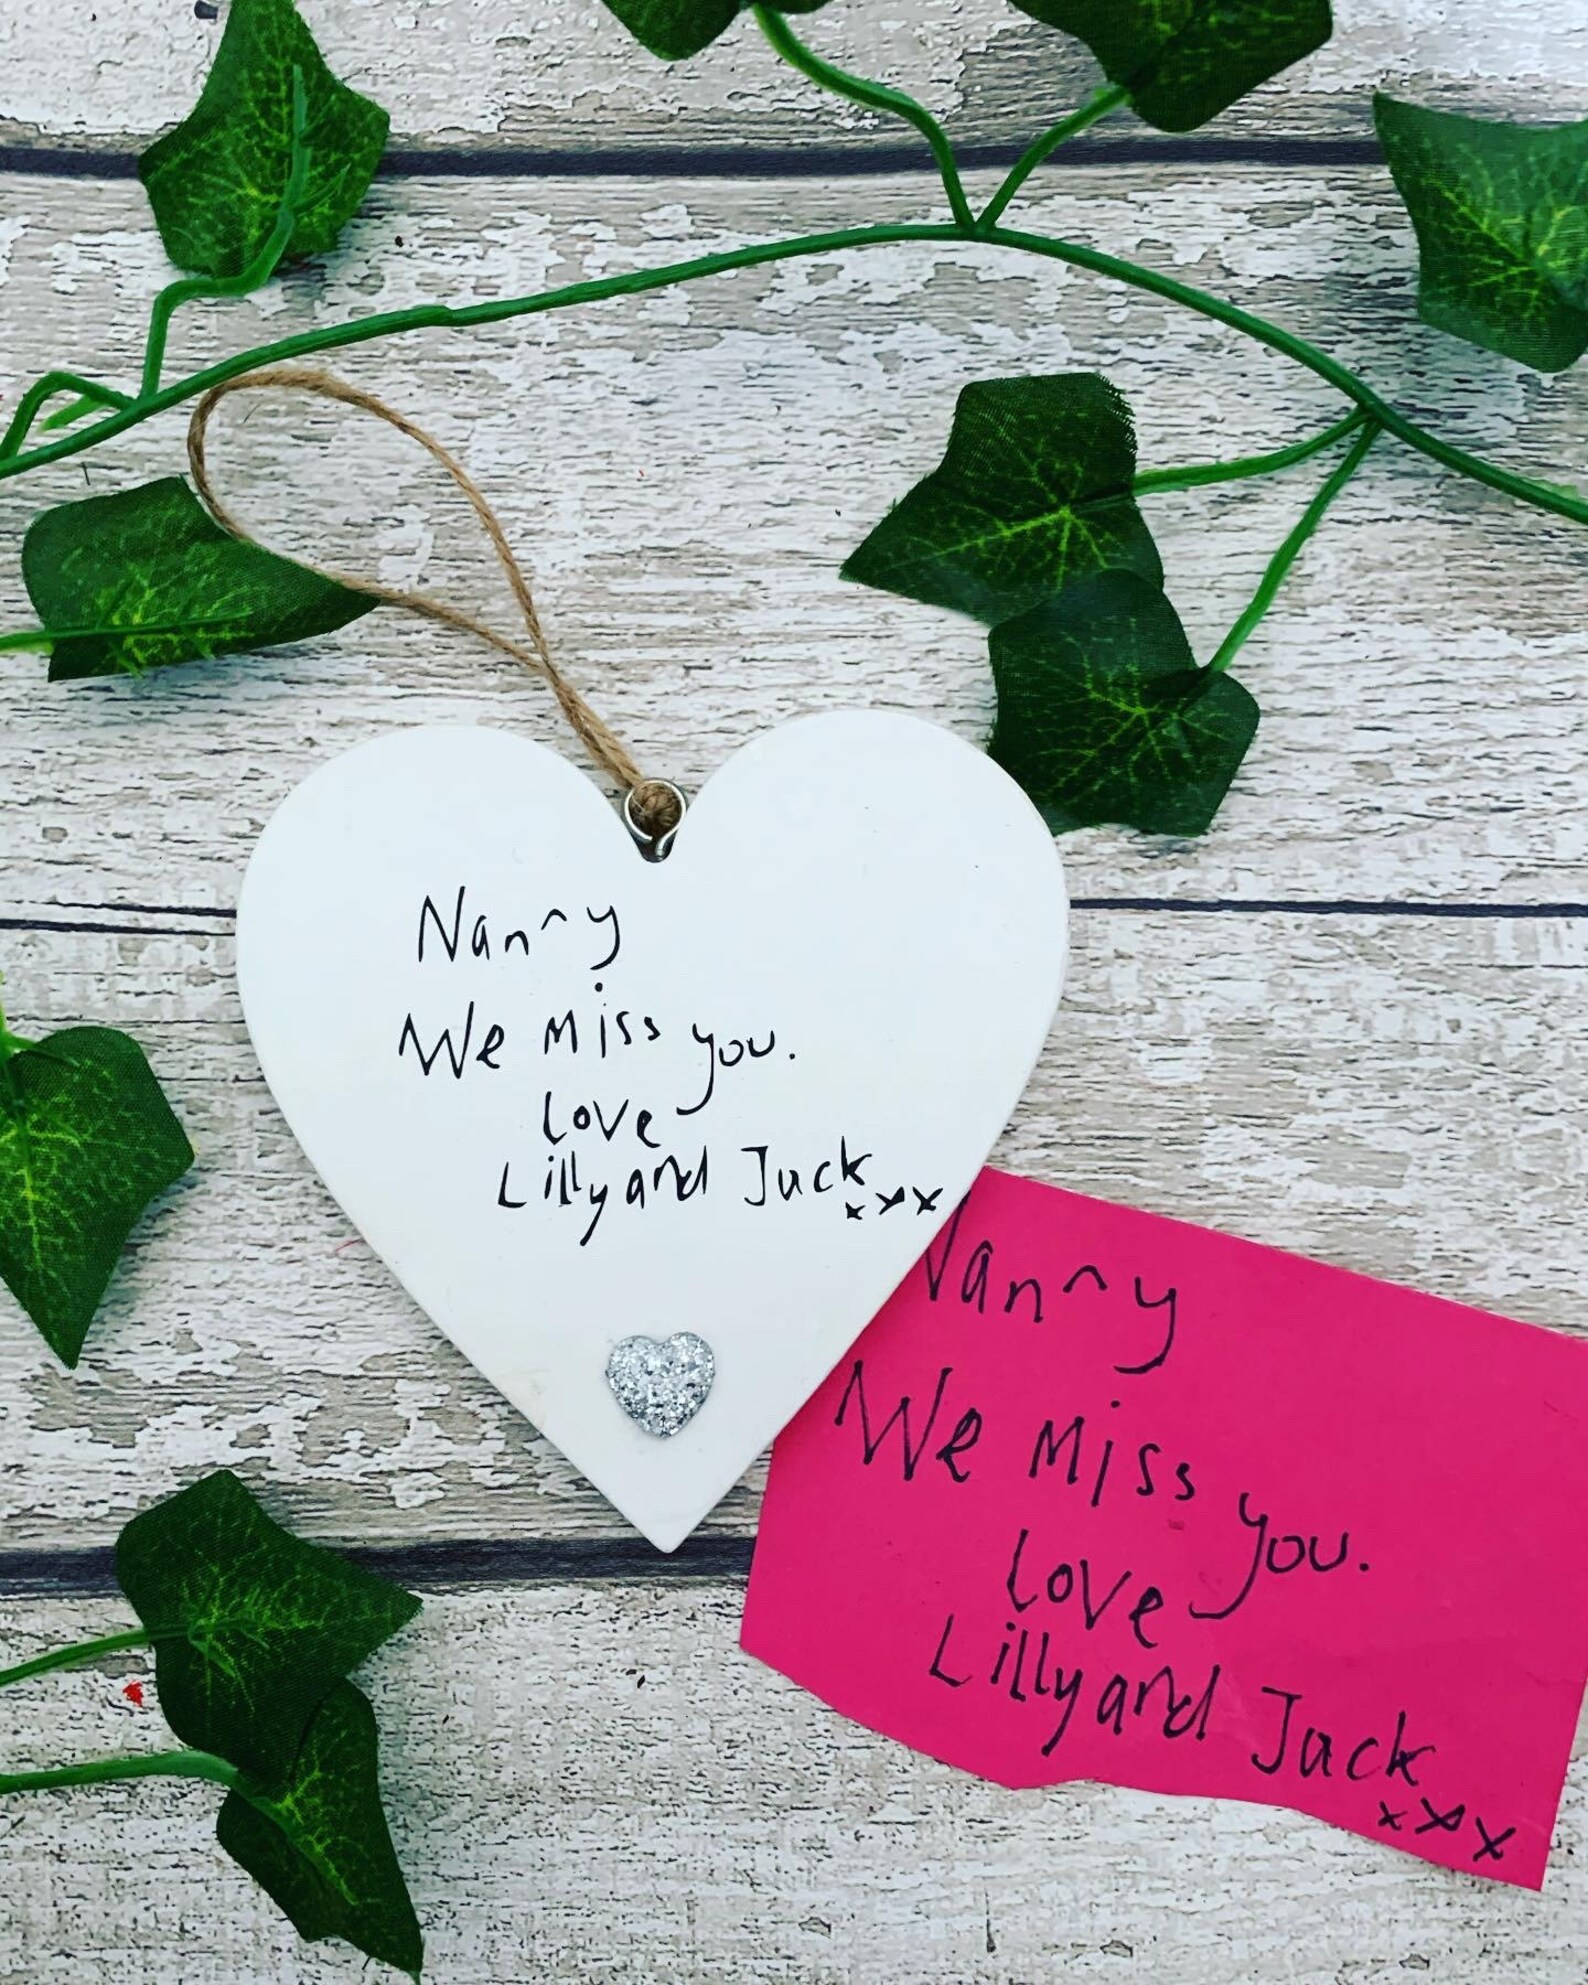 Nanny
We miss you.
love
Lilly and Jack
xxx
Nanny
We miss you.
love
Lilly and Jack
xxx